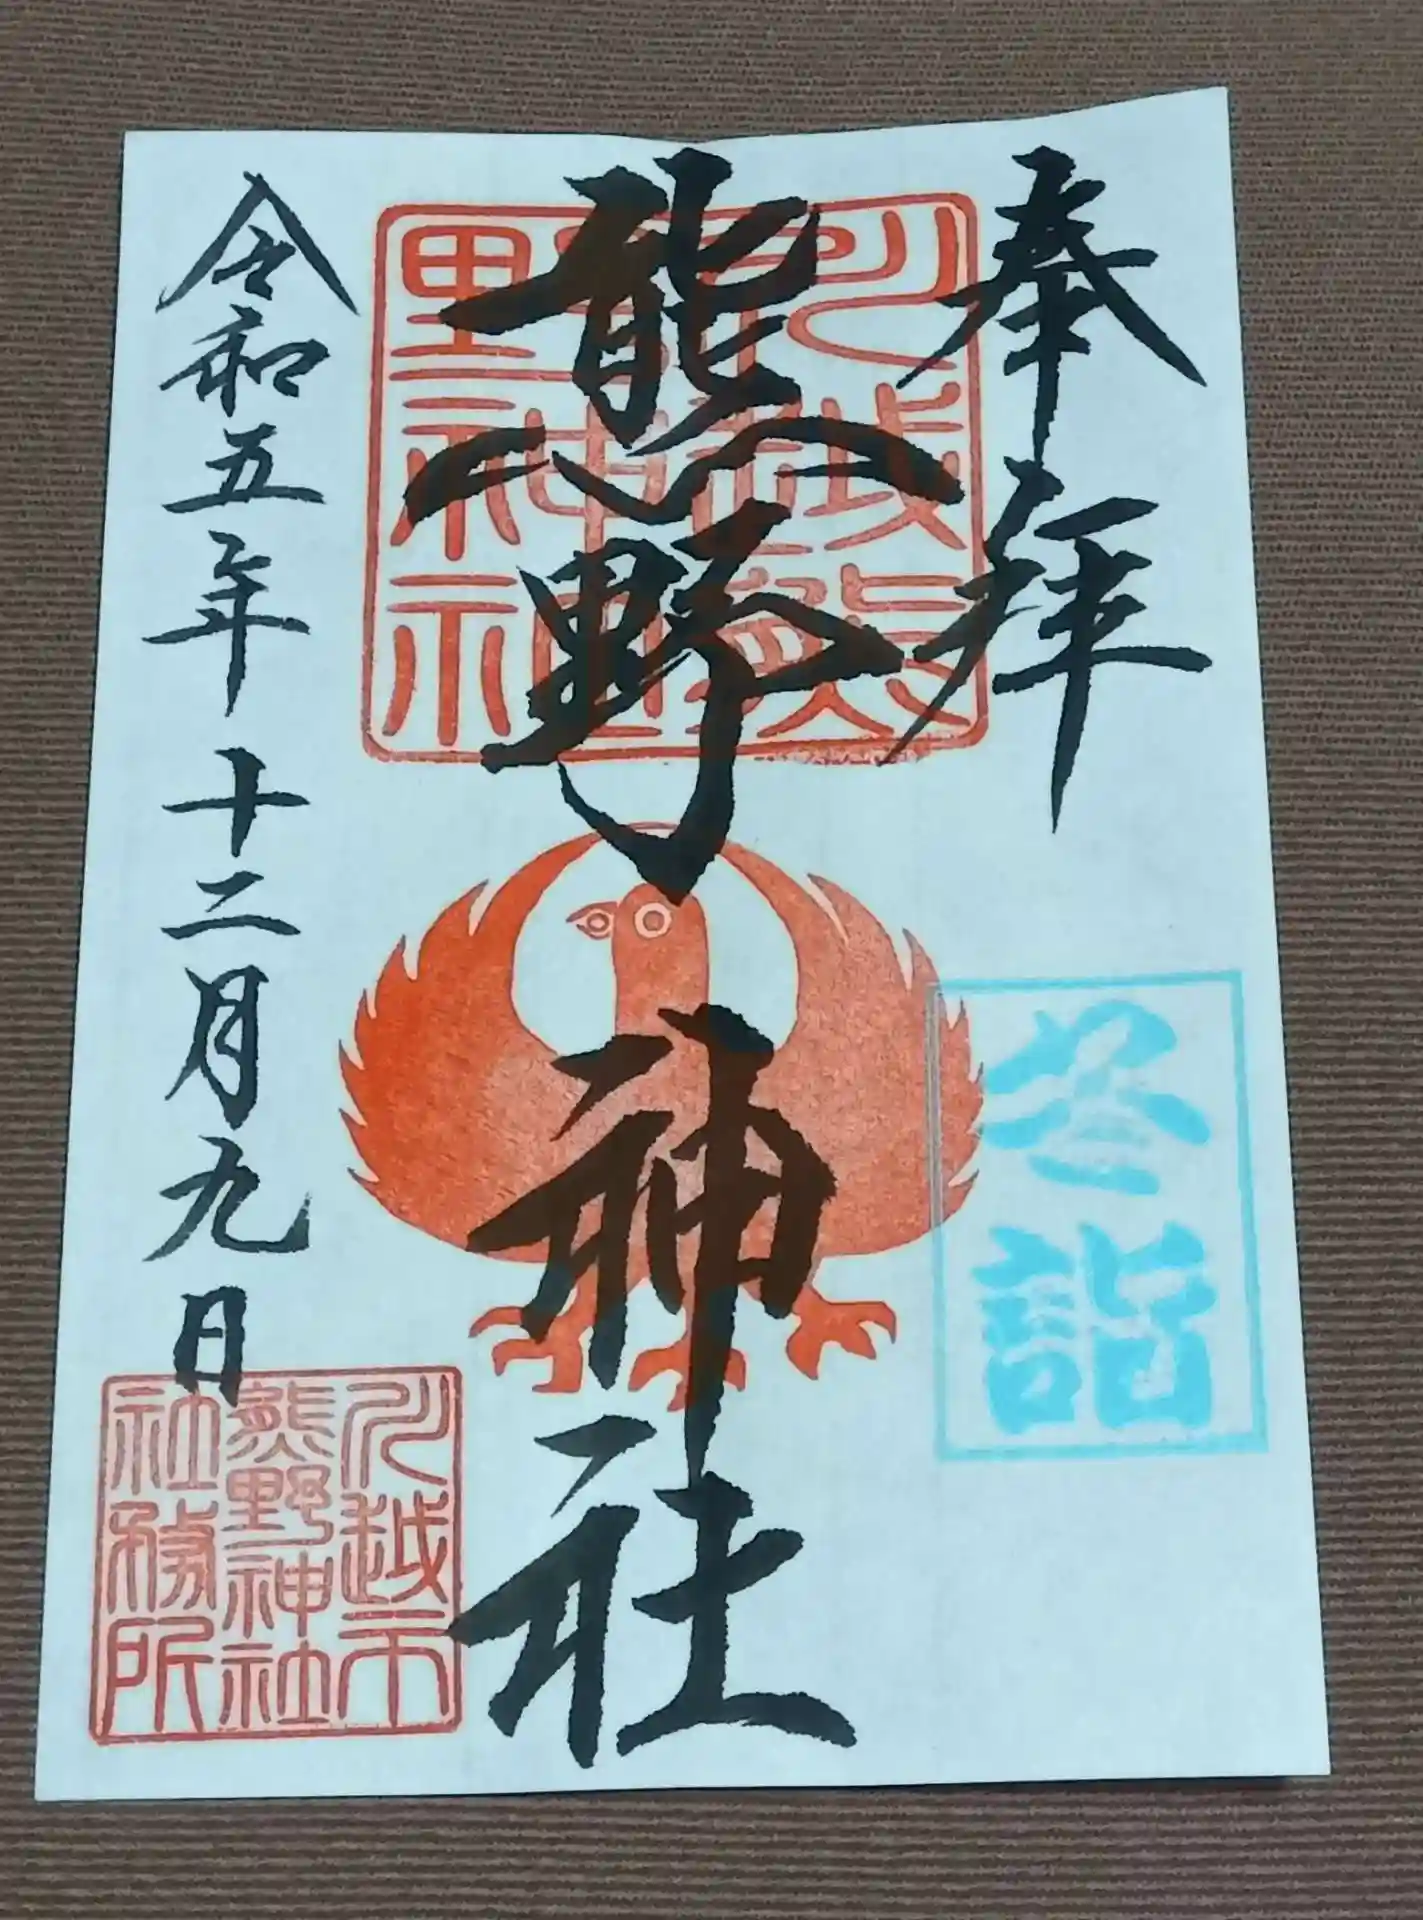 奉拝
冬詣
川越熊
野神社
熊野神社
令和五年十二月九日
川越市
熊野神社
社務所